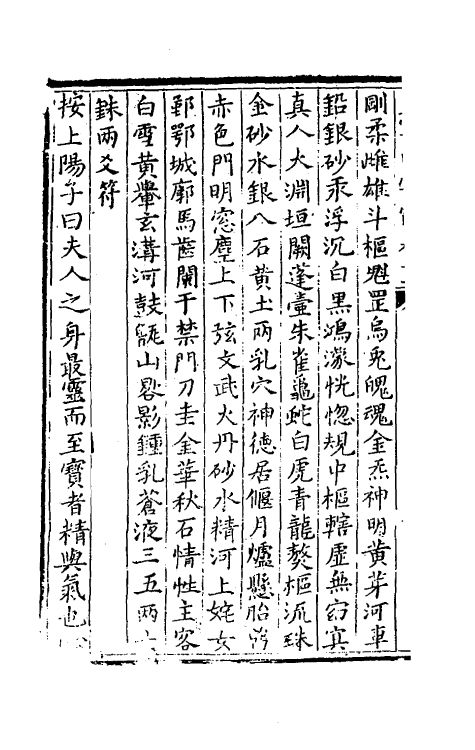 剛柔雌雄斗樞魁罡烏兎魄魂金炁神明黄芽河車
鉛銀砂汞浮沉白黒鴻濛恍惚規中樞轄虛無窈冥
真人大淵垣闕蓬壷朱雀龜蛇白虎青龍鰲樞流珠
金砂水銀八石黄土兩乳穴神德居偃月爐懸胎
赤色門明窓塵上下弦文武火丹砂水精河上姹女
郢鄂城廓馬齒闌干禁門刀圭金華秋石情性主客
白雪黄轝玄溝河鼓山影鍾乳蒼液三五兩
銖兩爻符
按上陽子曰夫人之身最靈而至寳者精與氣也